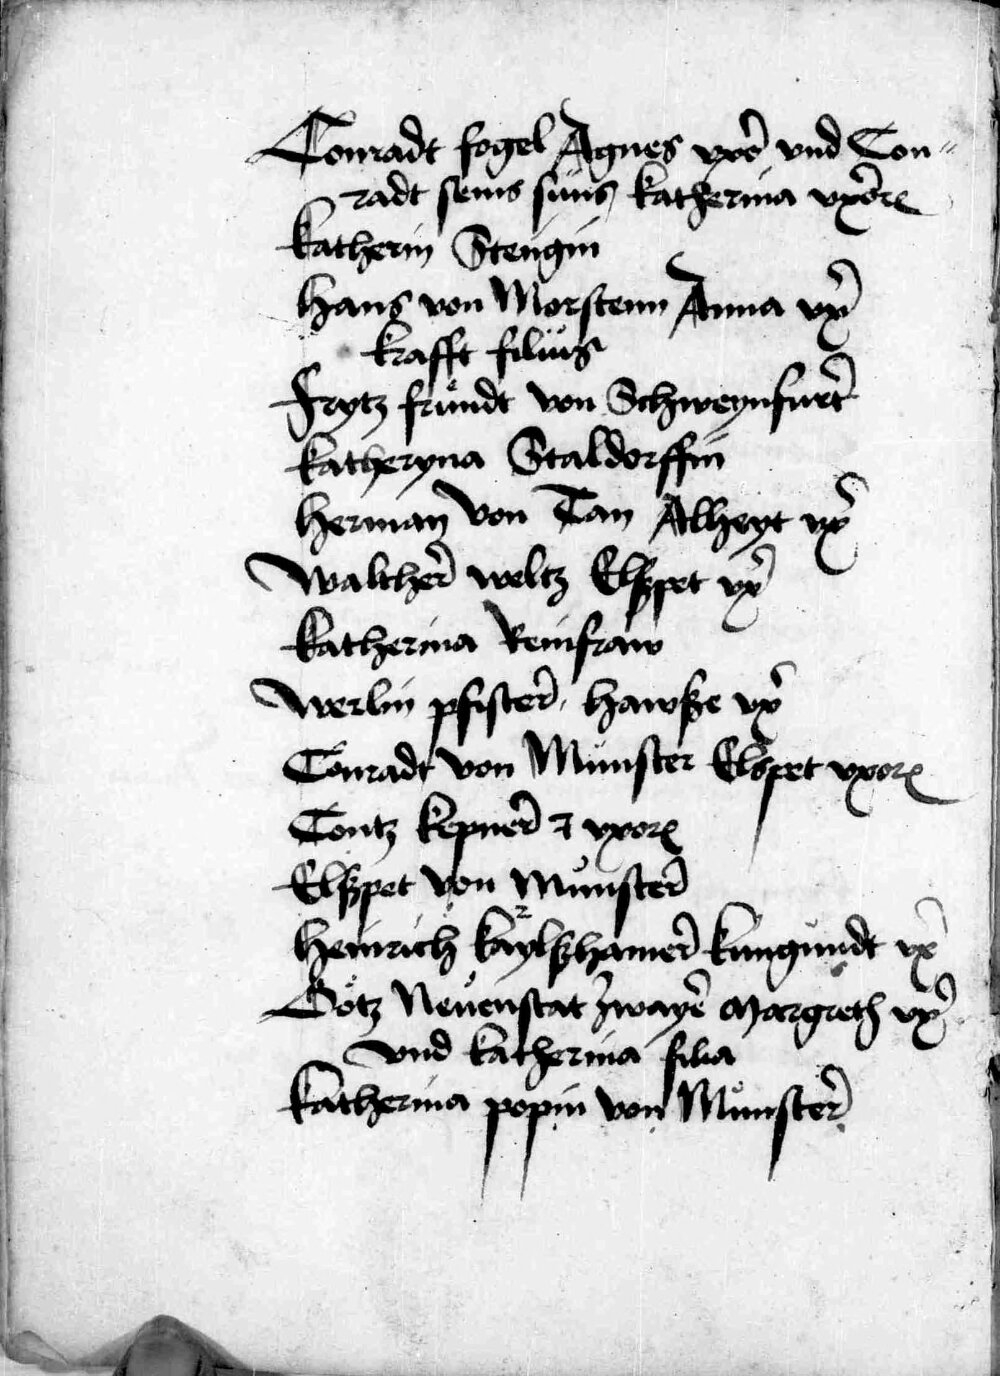 Conradt fogel Agnes vxor und Con=
radt seins suns katherina vxore
katherin Stengin
Hans von Morstenn Anna vx
krafft filius
Frytz frundt von Schweynfurt
katheryna Staldorffin
Herman von Tan Alheyt vx
Walther weltz Elßpet vx
katherina Reinfraw
Werlin pfister hawße vx
Conradt von Munster Elspet vxore
Contz kepner vxore
Elßpet von Munster
Heinrich kaylßhamer kungundt vx
Götz Neuenstat Margreth vx
vnd katherina filia
katherina popin von Munster